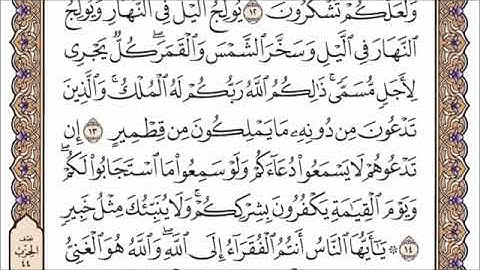 وَلَعَلَّكُمْ تَشْكُرُونَ ١٢ يُولِجُ ٱلَّيْلَ فِى ٱلنَّهَارِ وَيُولِجُ
ٱلنَّهَارَ فِى ٱلَّيْلِ وَسَخَّرَ ٱلشَّمْسَ وَٱلْقَمَرَ كُلٌّ يَجْرِى
لِأَجَلٍ مُّسَمًّى ۚ ذَٰلِكُمُ ٱللَّهُ رَبُّكُمْ لَهُ ٱلْمُلْكُ ۚ وَٱلَّذِينَ
تَدْعُونَ مِن دُونِهِۦ مَا يَمْلِكُونَ مِن قِطْمِيرٍ ١٣ إِن
تَدْعُوهُمْ لَا يَسْمَعُوا۟ دُعَآءَكُمْ وَلَوْ سَمِعُوا۟ مَا ٱسْتَجَابُوا۟ لَكُمْ ۖ
وَيَوْمَ ٱلْقِيَٰمَةِ يَكْفُرُونَ بِشِرْكِكُمْ ۚ وَلَا يُنَبِّئُكَ مِثْلُ خَبِيرٍ
١٤ ۞ يَٰٓأَيُّهَا ٱلنَّاسُ أَنتُمُ ٱلْفُقَرَآءُ إِلَى ٱللَّهِ ۖ وَٱللَّهُ هُوَ ٱلْغَنِىُّ
نصف
الحزب
٤٤